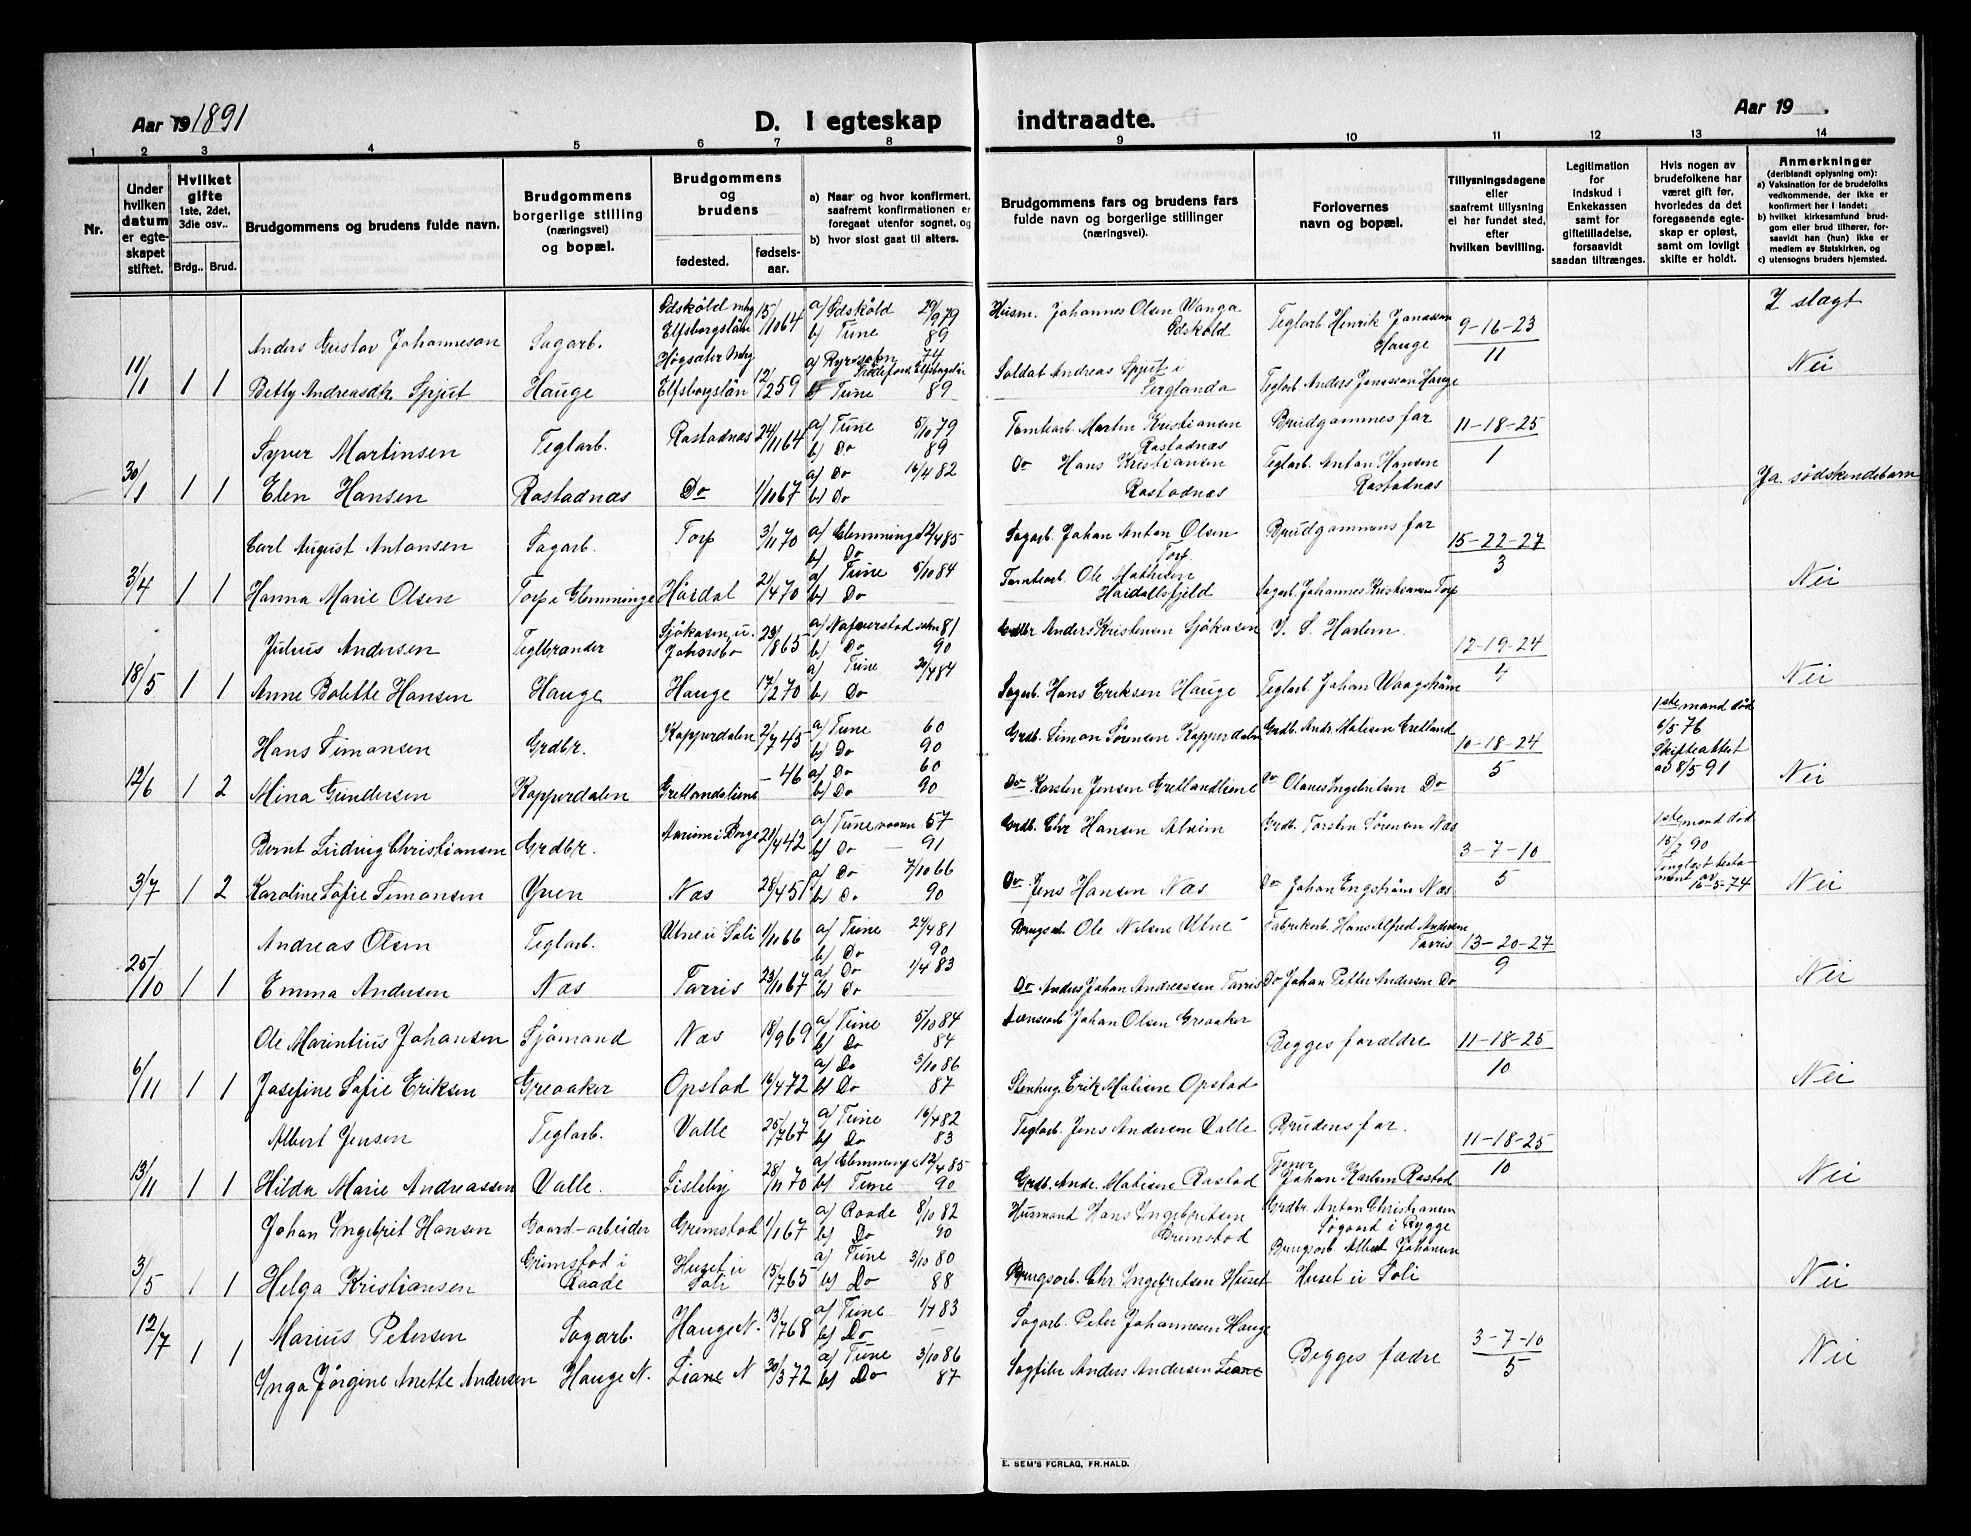 Aar 19 1891
D. I egteskap
indtraadte.
Aar 19 .
1 2 3 4 5 6 7 8 9 10 11 12 13 14
Nr.
Under hvilken datum er egteskapet stiftet.
Hvilket gifte
1ste, 2det, 3die osv..
Brdg.. Brud.
Brudgommens og brudens fulde navn.
Brudgommens borgerlige stilling (næringsvei) og bopæl.
Brudgommens og brudens
fødested.
fødselsaar.
a) Naar og hvor konfirmert, saafremt konfirmationen er foregaaet utenfor sognet, og
b) hvor sidst gaat til alters.
Brudgommens fars og brudens fars fulde navn og borgerlige stillinger (næringsvei).
Forlovernes navn og bopæl.
Tillysningsdagene eller saafremt tillysning ei har fundet sted, efter hvilken bevilling.
Legitimation for indskud i Enkekassen samt for giftetilladelse, forsaavidt saadan tiltrænges.
Hvis nogen av brudefolkene har været gift før, hvorledes da det foregaaende egteskap er opløst, samt om lovligt skifte er holdt.
Anmerkninger
(deriblandt oplysning om):
a) Vaksination for de brudefolks vedkommende, der ikke er konfirmert her i landet;
b) hvilket kirkesamfund brudgom eller brud tilhører, forsaavidt han (hun) ikke er medlem av Statskirken, og
c) utensogns bruders hjemsted.
Anders Gustav Johanneson Sagarb. Elfsborgslän 15/10 64 a) Ødsköld 29/9 79 b) Tune 89 Husm. Johannes Olsen Wanga Ødsköld Teglarb Henrik Jonasson Hauge 9-16-23 I slagt
11/1 1 1 Betty Andreasdtr. Spjut Hauge Elfsborgslän 12/2 59 74 b) Tune 89 Soldat Andreas Spjut i Teglarb Anders Jonasson Hauge 11 Nei
Syver Martinsen Teglarb. Rostadnæs 24/11 64 a) Tune 5/10 79 b) Do 89 Tomtearb. Martin Kristiansen Rostadnæs Brudgommes far 11-18-25
30/1 1 1 Elen Hansen Rostadnæs Do 1/10 67 a) Do 16/4 82 b) Do Do Hans Kristiansen Rostadnæs Teglarb. Anton Hansen Rostadnæs 1 Ja sødskendebarn
Carl August Antonsen Sagarb. Torp 3/11 70 a) Glemminge 12/4 85 b) Do Sagarb. Johan Anton Olsen Torp Brudgommens far 15-22-27
3/4 1 1 Hanna Marie Olsen Torp i Glemminge Haidal 21/4 70 a) Tune 5/10 84 b) Do Tomtearb. Ole Mathisen Haidalsfjeld Sagarb. Johannes Kristiansen Torp 3 Nei
Julius Andersen Teglbrænder 23/8 65 81 b) Do 90 Grdbr Anders Kristensen Sjökasen J. S. Harlem 12-19-24
18/5 1 1 Anne Bolette Hansen Hauge Hauge 17/2 70 a) Tune 20/4 84 b) Do Sagarb. Hans Eriksen Hauge Teglarb. Johan Waagström 4 Nei
Hans Simonsen Grdbr. Kopperdalen 2/7 45 a) Tune 60 b) Do 90 Grdb. Simon Sørensen Kopperdalen Grdb. Andr. Matisen Gretland 10-18-24 1ste mand død 6/5 76
12/6 1 2 Mina Gundersen Kopperdalen Gretlandsliene - 46 a) Do 60 b) Do 90 Do Karsten Jensen Gretlandliene Do Olaves Ingebritsen Do 5 Skifteattest av 8/5 91 Nei
Bernt Ludvig Christiansen Grdbr. 21/4 42 a) Tune vaaren 57 b) Do 91 Grdb. Chr Hansen Alvim Grdb. Torsten Sørensen Næs 3-7-10 1ste mand død 15/7 90
3/7 1 2 Karoline Sofie Simonsen Yven Næs 28/4 51 a) Do 7/10 66 b) Do 90 Do Jens Hansen Næs Do Johan Engström Næs 5 Tinglæst testament av 16-5-74 Nei
Andreas Olsen Teglarb. Utne i Soli 1/10 66 a) Tune 24/4 81 b) Do 90 Brugsei. Ole Nilsen Utne Fabrikarb. Hans Alfred Andersen Tarris 13-20-27
25/10 1 1 Emma Andersen Næs Tarris 23/10 67 a) Do 1/4 83 b) Do Do Anders Johan Andreassen Tarris Do Johan Petter Andersen Do 9 Nei
Ole Marintius Johansen Sjömand Næs 18/9 69 a) Tune 5/10 84 b) Do 84 Lænsearb Johan Olsen Greaaker Begges forældre 11-18-25
6/11 1 1 Josefine Sofie Eriksen Greaaker Opstad 16/4 72 a) Do 3/10 86 b) Do 87 Stenhug. Erik Matisen Opstad 10 Nei
Albert Jensen Teglarb. Valle 25/7 67 a) Tune 16/4 82 b) Do 83 Teglarb Jens Andersen Valle Brudens far. 11-18-25
13/11 1 1 Hilda Marie Andreassen Valle. Lisleby 28/11 70 a) Glemminge 12/4 85 b) Tune 90 Grdb. Andr. Matisen Rostad Tjener Johan Karlsen Rostad 10 Nei
Johan Ingebrit Hansen Gaard-arbeider Grimstad 1/1 67 a) Raade 8/10 82 b) Do 90 Husmand Hans Ingebritsen Grimstad Grdbr Anton Christiansen Søgaard i Rygge
3/5 1 1 Helga Kristiansen Grimstad i Raade Huset i Soli 15/7 65 a) Tune 3/10 80 b) Do 88 Brugsarb. Chr. Ingebritsen Huset Brugsarb Albert Johansen Huset i Soli Nei
12/7 Marius Petersen Sagarb. Hauge N. 13/7 68 a) Tune 1/4 83 b) Do Sagarb. Peter Johannesen Hauge Begges fædre 3-7-10
1 1 Inga Jörgine Anette Andersen Hauge N. Liane N 30/3 72 a) Tune 3/10 86 b) Do 87 Sagfiler Anders Andersen Liane 5 Nei
E. SEM'S FORLAG, FR.HALD.